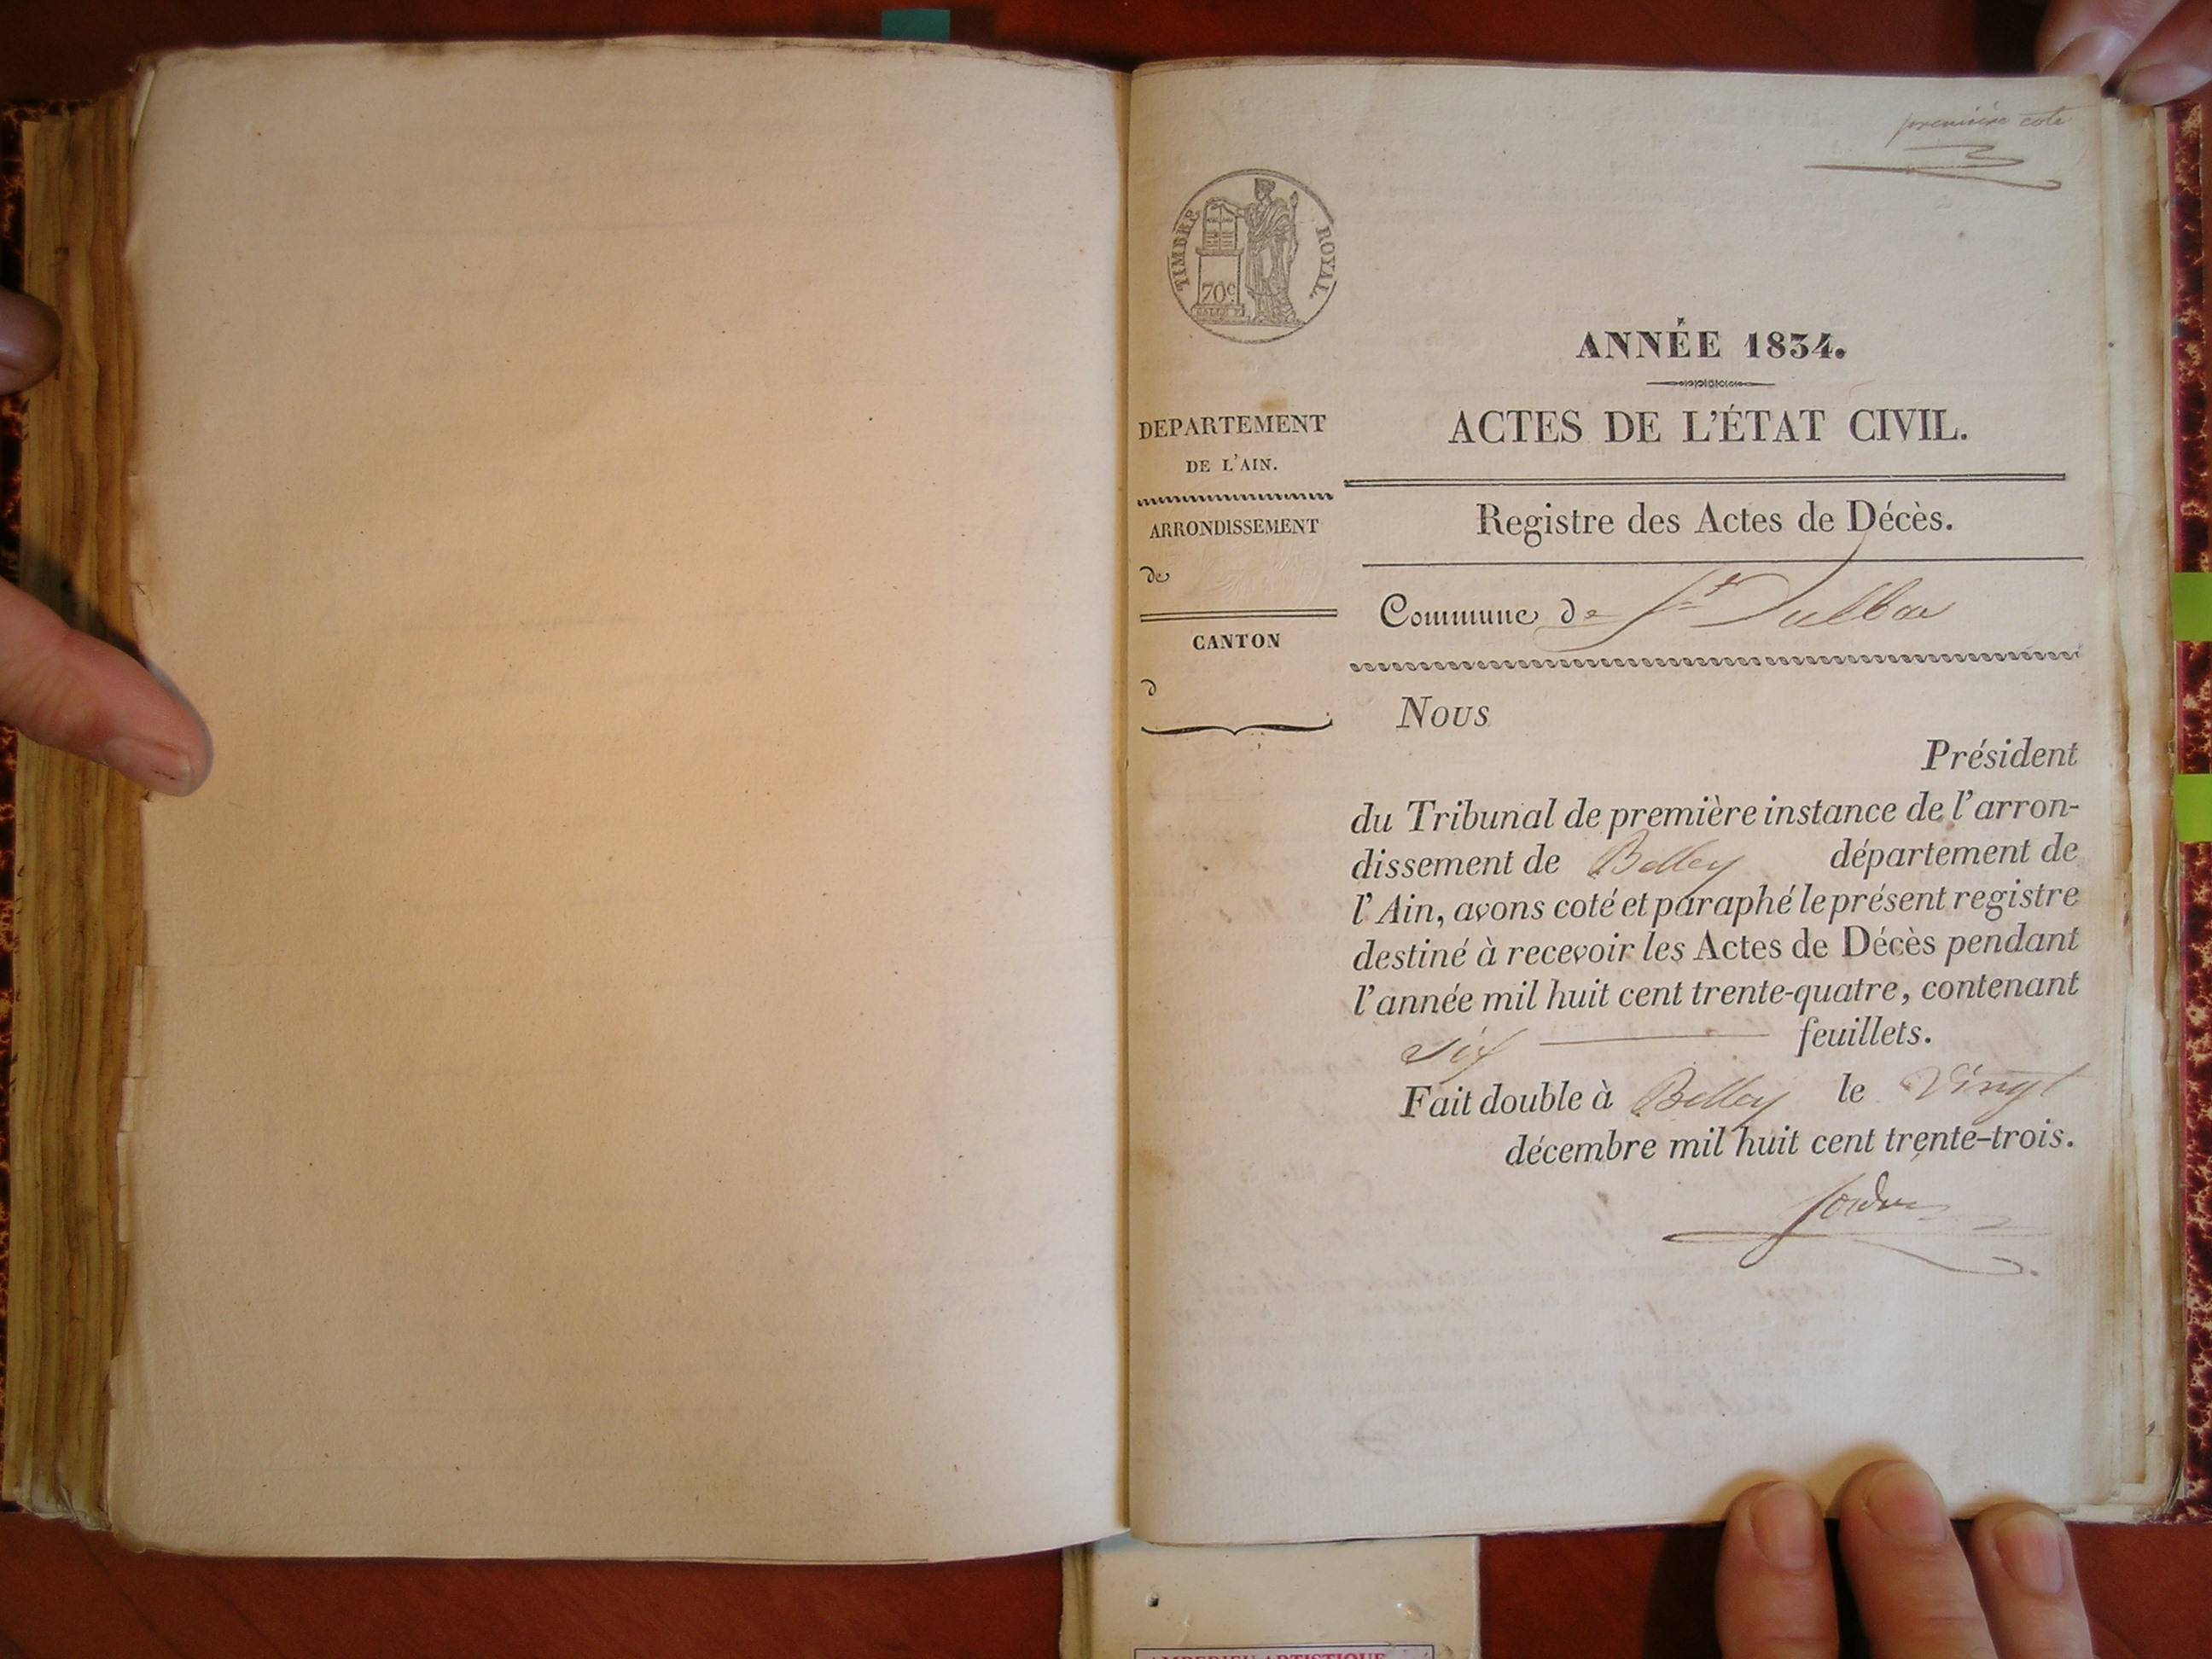 première cote
TIMBRE ROYAL
70c
ANNÉE 1834.
ACTES DE L'ÉTAT CIVIL.
Registre des Actes de Décès.
Commune de St Sulbar
DEPARTEMENT
DE L'AIN.
ARRONDISSEMENT
de
CANTON
d
Nous
Président
du Tribunal de première instance de l'arron-
dissement de Belley département de
l'Ain, avons coté et paraphé le présent registre
destiné à recevoir les Actes de Décès pendant
l'année mil huit cent trente-quatre, contenant
six feuillets.
Fait double à Belley le Vingt
décembre mil huit cent trente-trois.
AMBERIEU ARTISTIQUE